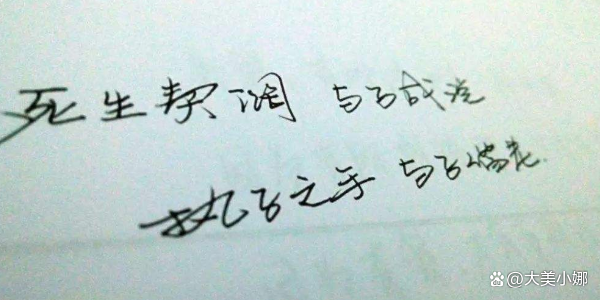 死生契阔 与子成说
执子之手 与子偕老
@大美小娜